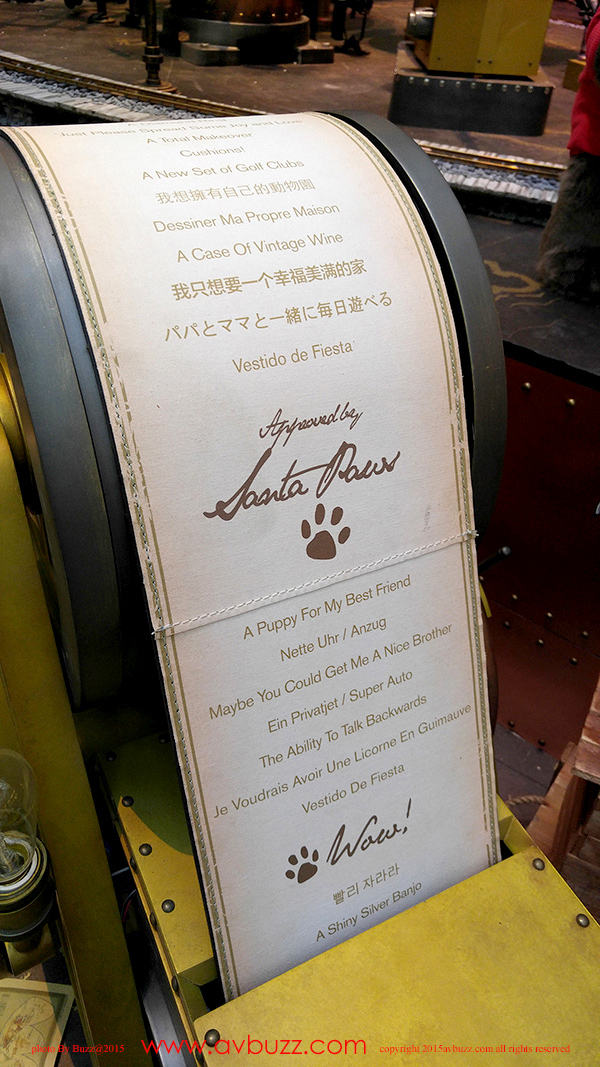 Just Please Spread Some Joy and Love
A Total Makeover
Cushions!
A New Set of Golf Clubs
我想擁有自己的動物園
Dessiner Ma Propre Maison
A Case Of Vintage Wine
我只想要一个幸福美满的家
パパとママと一緒に毎日遊べる
Vestido de Fiesta
Approved by
Santa Paws
A Puppy For My Best Friend
Nette Uhr / Anzug
Maybe You Could Get Me A Nice Brother
Ein Privatjet / Super Auto
The Ability To Talk Backwards
Je Voudrais Avoir Une Licorne En Guimauve
Vestido De Fiesta
Wow!
빨리 자라라
A Shiny Silver Banjo
photo By Buzz@2015 www.avbuzz.com copyright 2015avbuzz.com all rights reserved